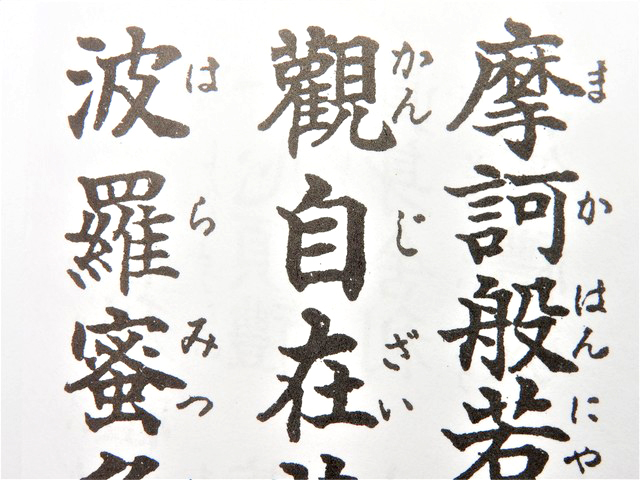 摩訶般若
まかはんにや
觀自在
かんじざい
波羅蜜
はらみつ